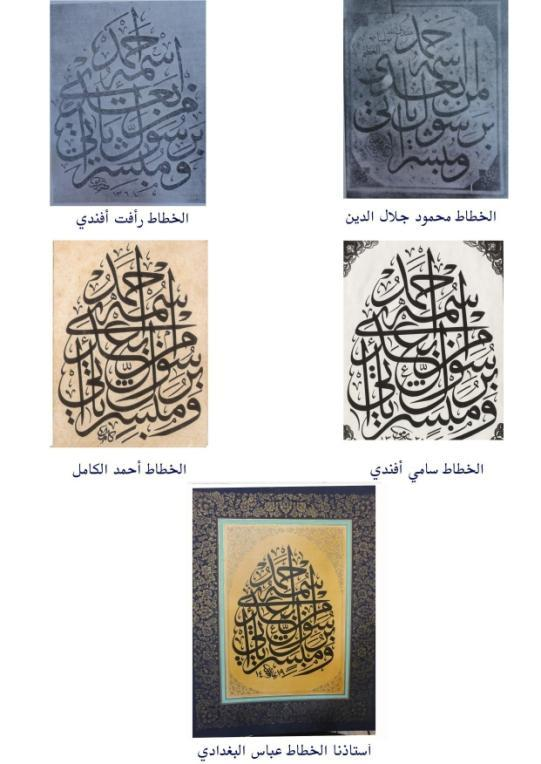 ومبشرا برسول يأتي من بعدي اسمه احمد
الخطاط محمود جلال الدين
ومبشرا برسول يأتي من بعدي اسمه احمد
الخطاط رأفت أفندي
ومبشرا برسول يأتي من بعدي اسمه احمد
الخطاط سامي أفندي
ومبشرا برسول يأتي من بعدي اسمه احمد
الخطاط أحمد الكامل
ومبشرا برسول يأتي من بعدي اسمه احمد
أستاذنا الخطاط عباس البغدادي